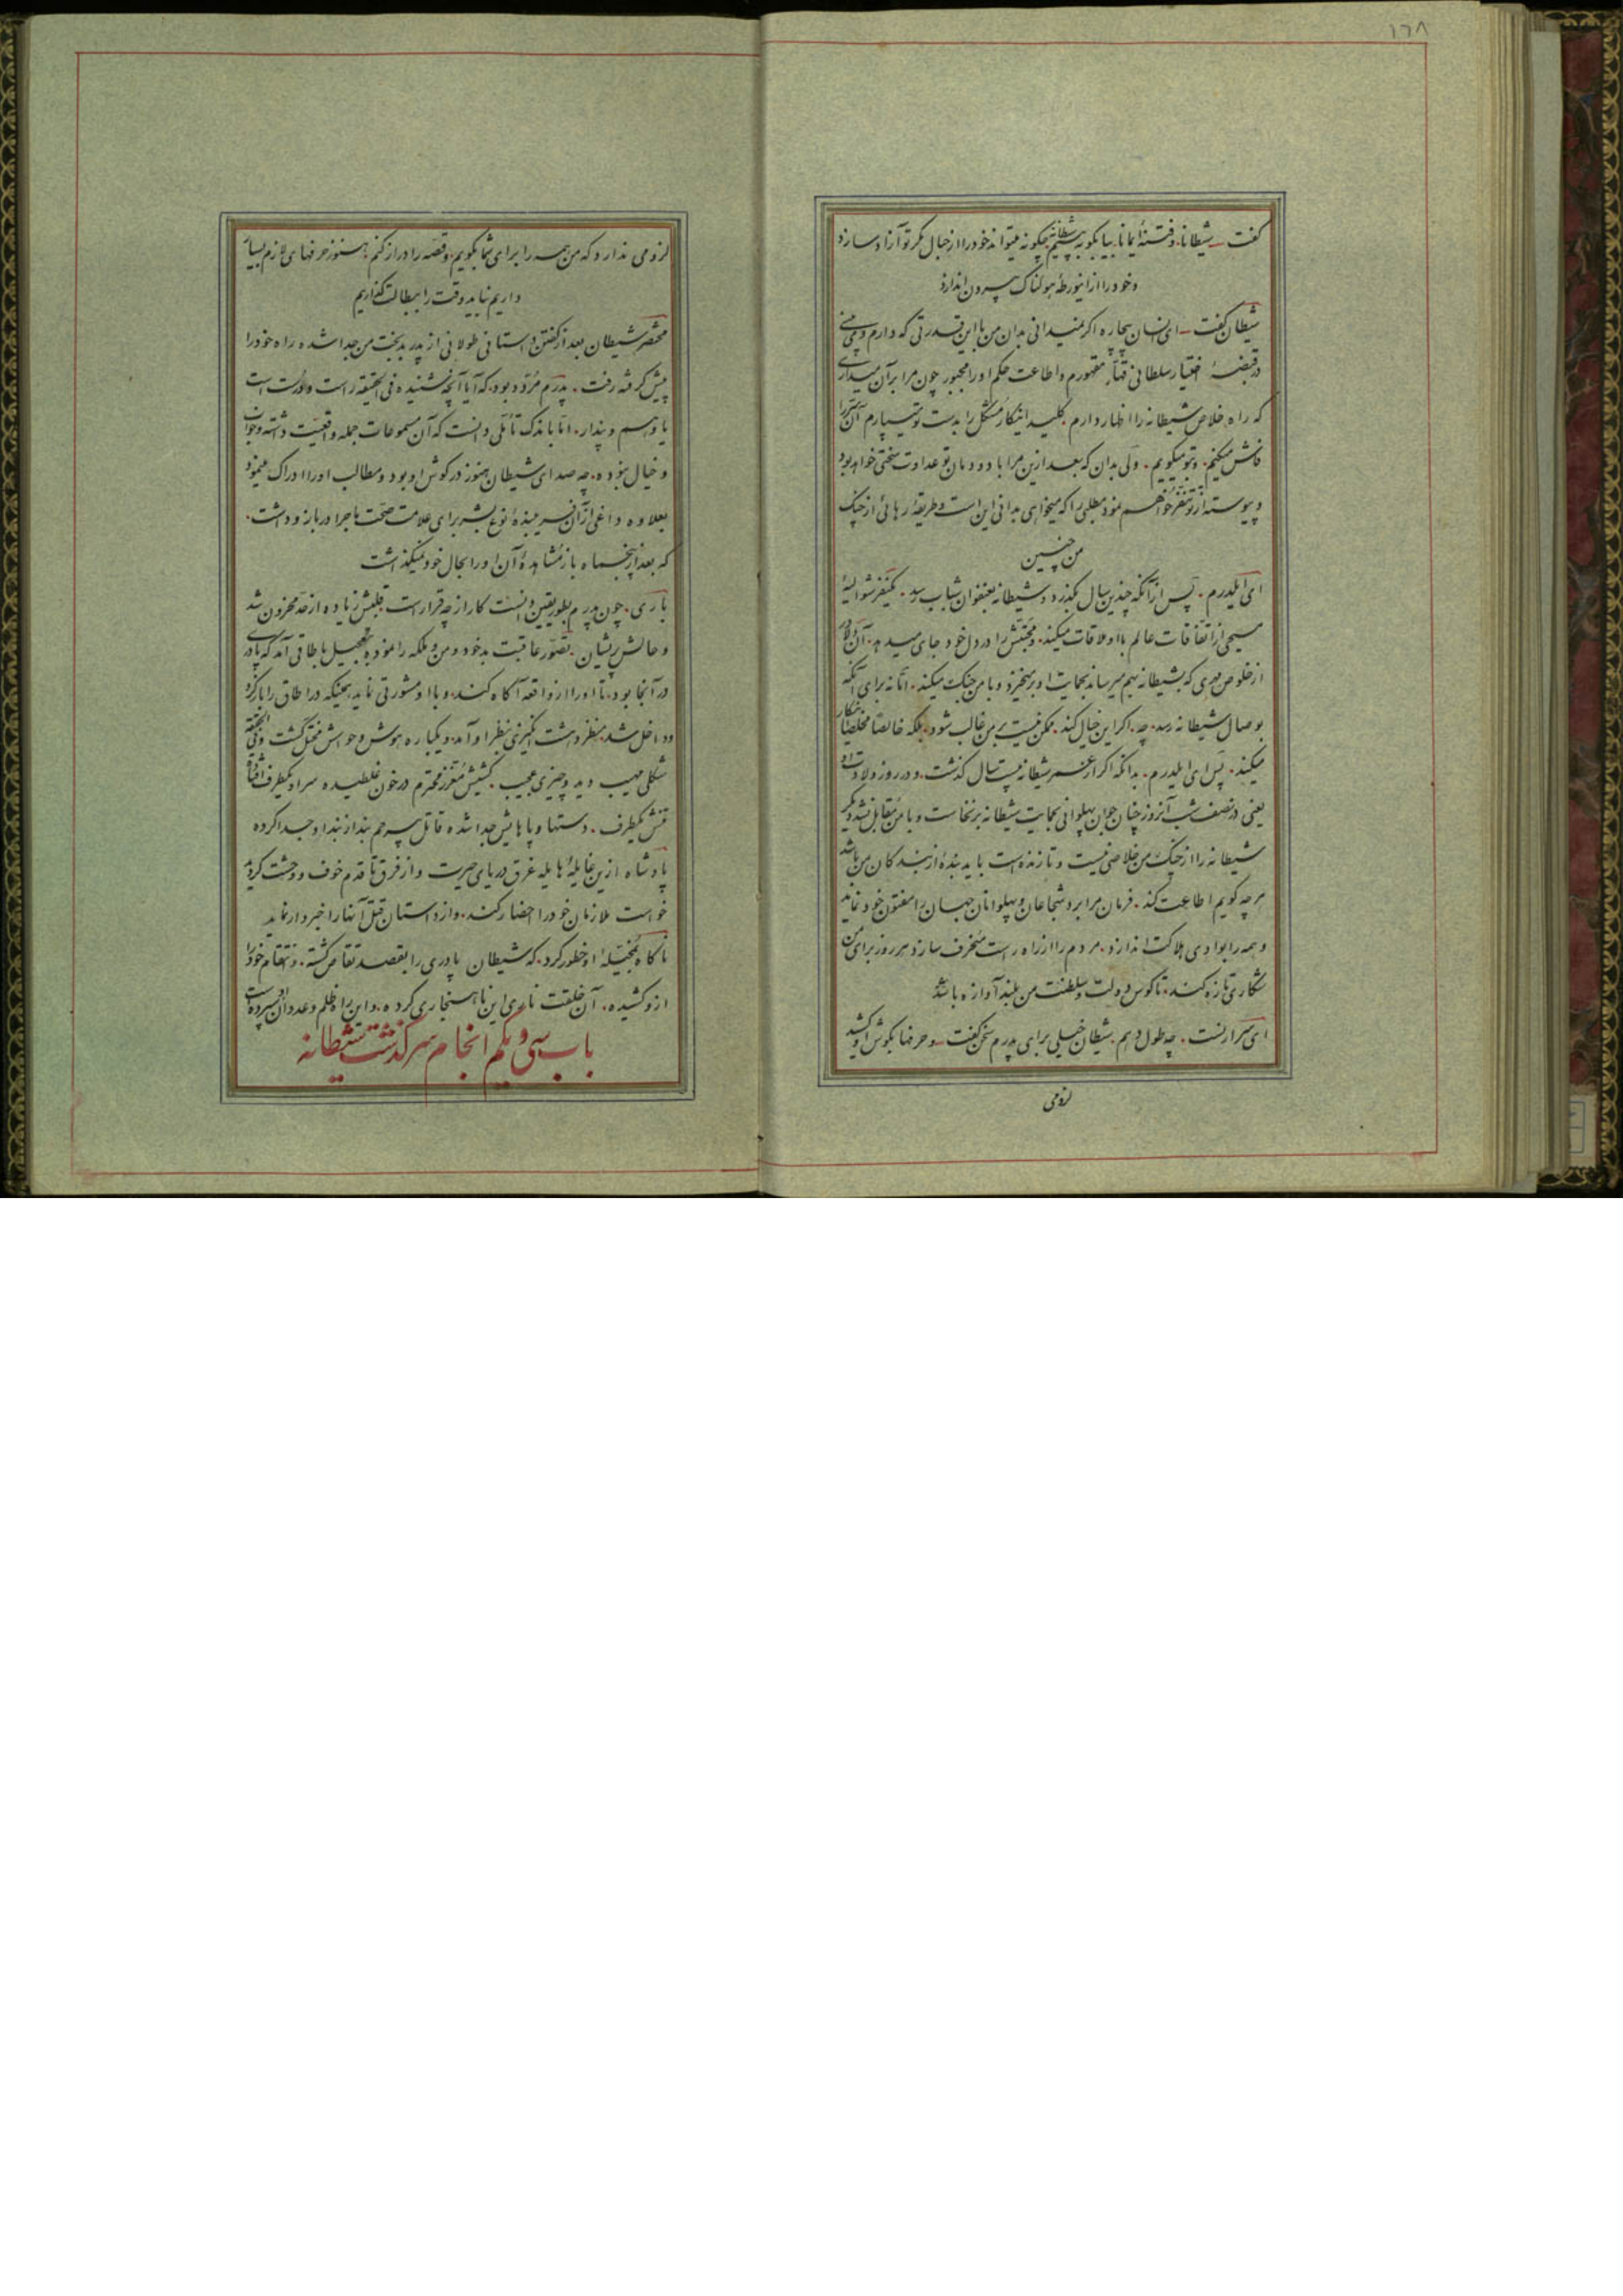 ١٦٨
گفت ـ شیطانا. و فتنهٔ ایمانا. بیا بگو به بینیم شیطانه چگونه میتواند خود را از حبال مکر تو آزاد سازد
و خود را از اینورطهٔ هولناک بیرون اندازد
شیطان گفت ـ ای انسان بیچاره اگر نمیدانی بدان من با این قدرتی که دارم و می بینی
در قبضهٔ اختیار سلطانی قهار مقهورم و اطاعت حکم او را مجبور چون مرا بر آن میداری
که راه خلاص شیطانه را اظهار دارم. کلید اینکار مشکل را بدست تو میسپارم آن سر را
فاش میکنم. و بتو میگویم. ولی بدان که بعد ازین مرا با دودمان تو عداوت سختی خواهد بود
و پیوسته از تو متنفر خواهم بود مطلبی را که میخواهی بدانی این است و طریقهٔ رهائی از چنگ
من چنین
ای ایلدرم. پس از آنکه چندین سال بگذرد و شیطانه بعنفوان شباب رسد. یکنفر شوالیهٔ
مسیحی از اتفاقات عالم با او ملاقات میکند. و محبتش را در دل خود جای میدهد. آن دلاور
از خلوص مهری که بشیطانه بهم میرساند بحمایت او برمیخیزد و با من جنگ میکند. اما نه برای آنکه
بوصال شیطانه رسد. چه. اگر این خیال کند. ممکن نیست بر من غالب شود. بلکه خالصا مخلصا اینکار
میکند. پس ای ایلدرم. بدانکه اگر از عمر شیطانه بیست سال گذشت. و در روز ولادت او
یعنی در نصف شب آنروز چنان جوان پهلوانی بحمایت شیطانه برنخاست و با من مقابل نشد دیگر
شیطانه را از چنگ من خلاصی نیست و تا زنده است باید بندهٔ از بندگان من باشد
هر چه گویم اطاعت کند. فرمان مرا برد شجاعان و پهلوانان جهان را مفتون خود نماید
و همه را بوادی هلاکت اندازد. مردم را از راه راست منحرف سازد هر روز برای من
شکاری تازه کند. تا کوس دولت و سلطنت من بلند آوازه باشد
ای سرارنست. چه طول دهم. شیطان خیلی برای پدرم سخن گفت ـ و حرفها بگوش او کشید
لزومی
لزومی ندارد که من همه را برای شما بگویم. و قصه را دراز کنم. هنوز حرفهای لازم بسیار
داریم نباید وقت را ببطالت گذاریم
مختصر شیطان بعد از گفتن داستانی طولانی از پدر بدبخت من جدا شده راه خود را
پیش گرفته رفت. پدرم مردد بود. که آیا آنچه شنیده فی الحقیقه راست و درست است
یا وهم و پندار. اما باندک تأملی دانست که آن مسموعات جمله واقعیت داشته و خواب
و خیال نبوده. چه صدای شیطان هنوز در گوش او بود و مطالب او را ادراک مینمود
بعلاوه داغی از آن فریبندهٔ نوع بشر برای علامت صحت ماجرا در بازو داشت.
که بعد از پنجماه باز مشاهدهٔ آن او را بحال خود نمیگذاشت
باری. چون پدرم بطور یقین دانست کار از چه قرار است. قلبش زیاده از حد محزون شد
و حالش پریشان. تصور عاقبت بد خود و من و ملکه را نموده بتعجیل باطاقی آمد که پادری
در آنجا بود. تا او را از واقعه آگاه کند. و با او مشورتی نماید. همینکه در اطاق را باز کرد
و داخل شد. منظر دهشت انگیزی بنظر او آمد. و یکباره هوش و حواش مختل گشت و فی الحقیقه
شکلی مهیب دید و چیزی عجیب. کشیش معزز محترم در خون غلطیده سر او یکطرف افتاده
تنش یکطرف. دستها و پاهایش جدا شده قاتل بیرحم بند از بند او جدا کرده
پادشاه ازین غایلهٔ هایله غرق دریای حیرت و از فرق تا قدم خوف و وحشت گردید
خواست ملازمان خود را احضار کند. و از داستان قتل آنها را خبردار نماید
ناگاه بمخیلهٔ او خطور کرد. که شیطان پادری را بقصد تقاص کشته. و انتقام خود را
ازو کشیده. آن خلقت ناری این ناهنجاری کرده. و این راه ظلم و عدوان او سپرده است
باب سی و یکم انجام سرگذشت شیطانه